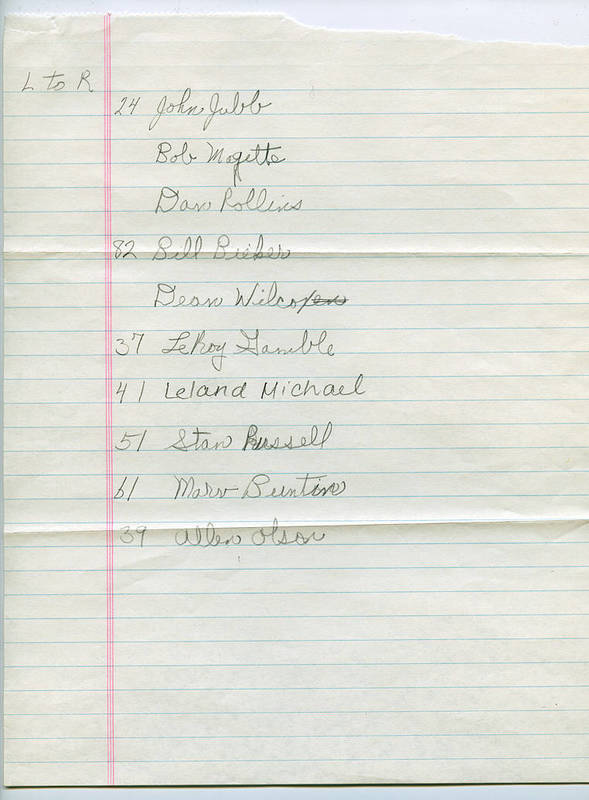 L to R
24 John Jubb
Bob Mogette
Dan Rollins
82 Bill Bieber
Dean Wilcox
37 LeRoy Gamble
41 Leland Michael
51 Stan Russell
61 Marv Buntin
39 Allen Olson